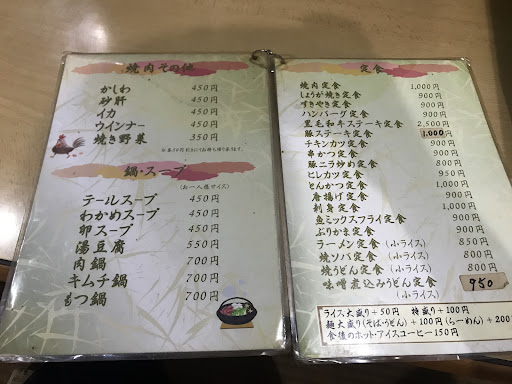 焼肉その他
かしわ 450円
砂肝 450円
イカ 450円
ウインナー 450円
焼き野菜 350円
鍋・スープ
(お一人様サイズ)
テールスープ 450円
わかめスープ 450円
卵スープ 450円
湯豆腐 550円
肉鍋 700円
キムチ鍋 700円
もつ鍋 700円
定食
焼肉定食 1,000円
しょうが焼き定食 900円
すきやき定食 900円
ハンバーグ定食 900円
黒毛和牛ステーキ定食 2,500円
豚ステーキ定食 1,000円
チキンカツ定食 900円
串かつ定食 900円
豚ニラ炒め定食 800円
ヒレカツ定食 950円
とんかつ定食 1,000円
唐揚げ定食 900円
刺身定食 1,000円
魚ミックスフライ定食 900円
ぶりかま定食 900円
ラーメン定食 (小ライス) 850円
焼ソバ定食 (小ライス) 800円
焼うどん定食 (小ライス) 800円
味噌煮込みうどん定食 950
(小ライス)
ライス大盛り+50円 特盛り+100円
麺大盛り(そば・うどん)+100円(らーめん)+200
食後のホット・アイスコーヒー150円